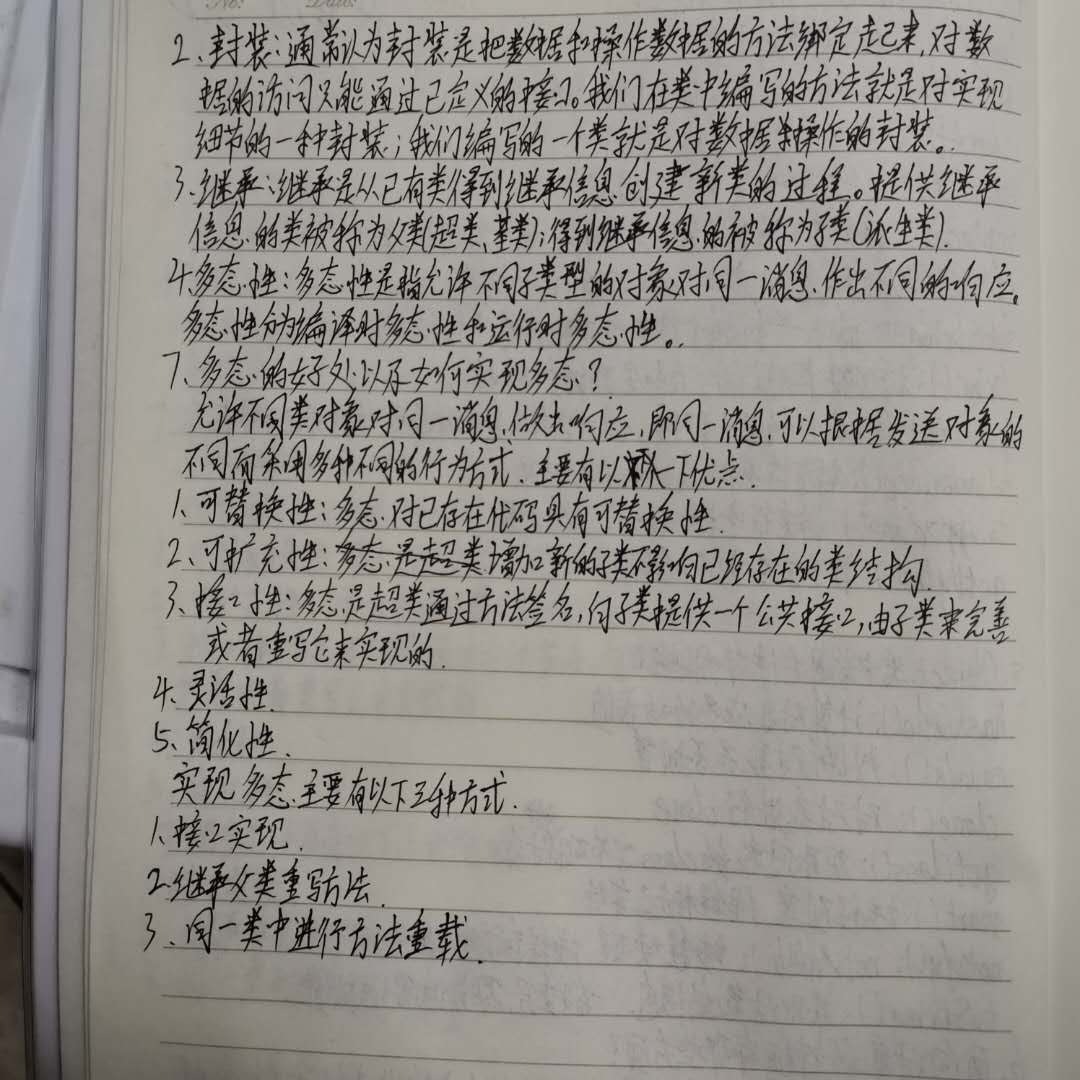 No: Date:
2、封装:通常认为封装是把数据和操作数据的方法绑定起来,对数
据的访问只能通过已定义的接口。我们在类中编写的方法就是对实现
细节的一种封装;我们编写的一个类就是对数据和操作的封装。
3、继承:继承是从已有类得到继承信息创建新类的过程。提供继承
信息的类被称为父类(超类、基类);得到继承信息的被称为子类(派生类).
4、多态性:多态性是指允许不同子类型的对象对同一消息作出不同的响应。
多态性分为编译时多态性和运行时多态性。
7、多态的好处以及如何实现多态?
允许不同类对象对同一消息做出响应,即同一消息可以根据发送对象的
不同而采用多种不同的行为方式.主要有以下优点.
1、可替换性:多态对已存在代码具有可替换性.
2、可扩充性:多态是超类增加新的子类不影响已经存在的类结构.
3、接口性:多态是超类通过方法签名,向子类提供一个公共接口,由子类来完善
或者重写它来实现的.
4、灵活性.
5、简化性.
实现多态主要有以下三种方式.
1、接口实现.
2.继承父类重写方法.
3、同一类中进行方法重载.